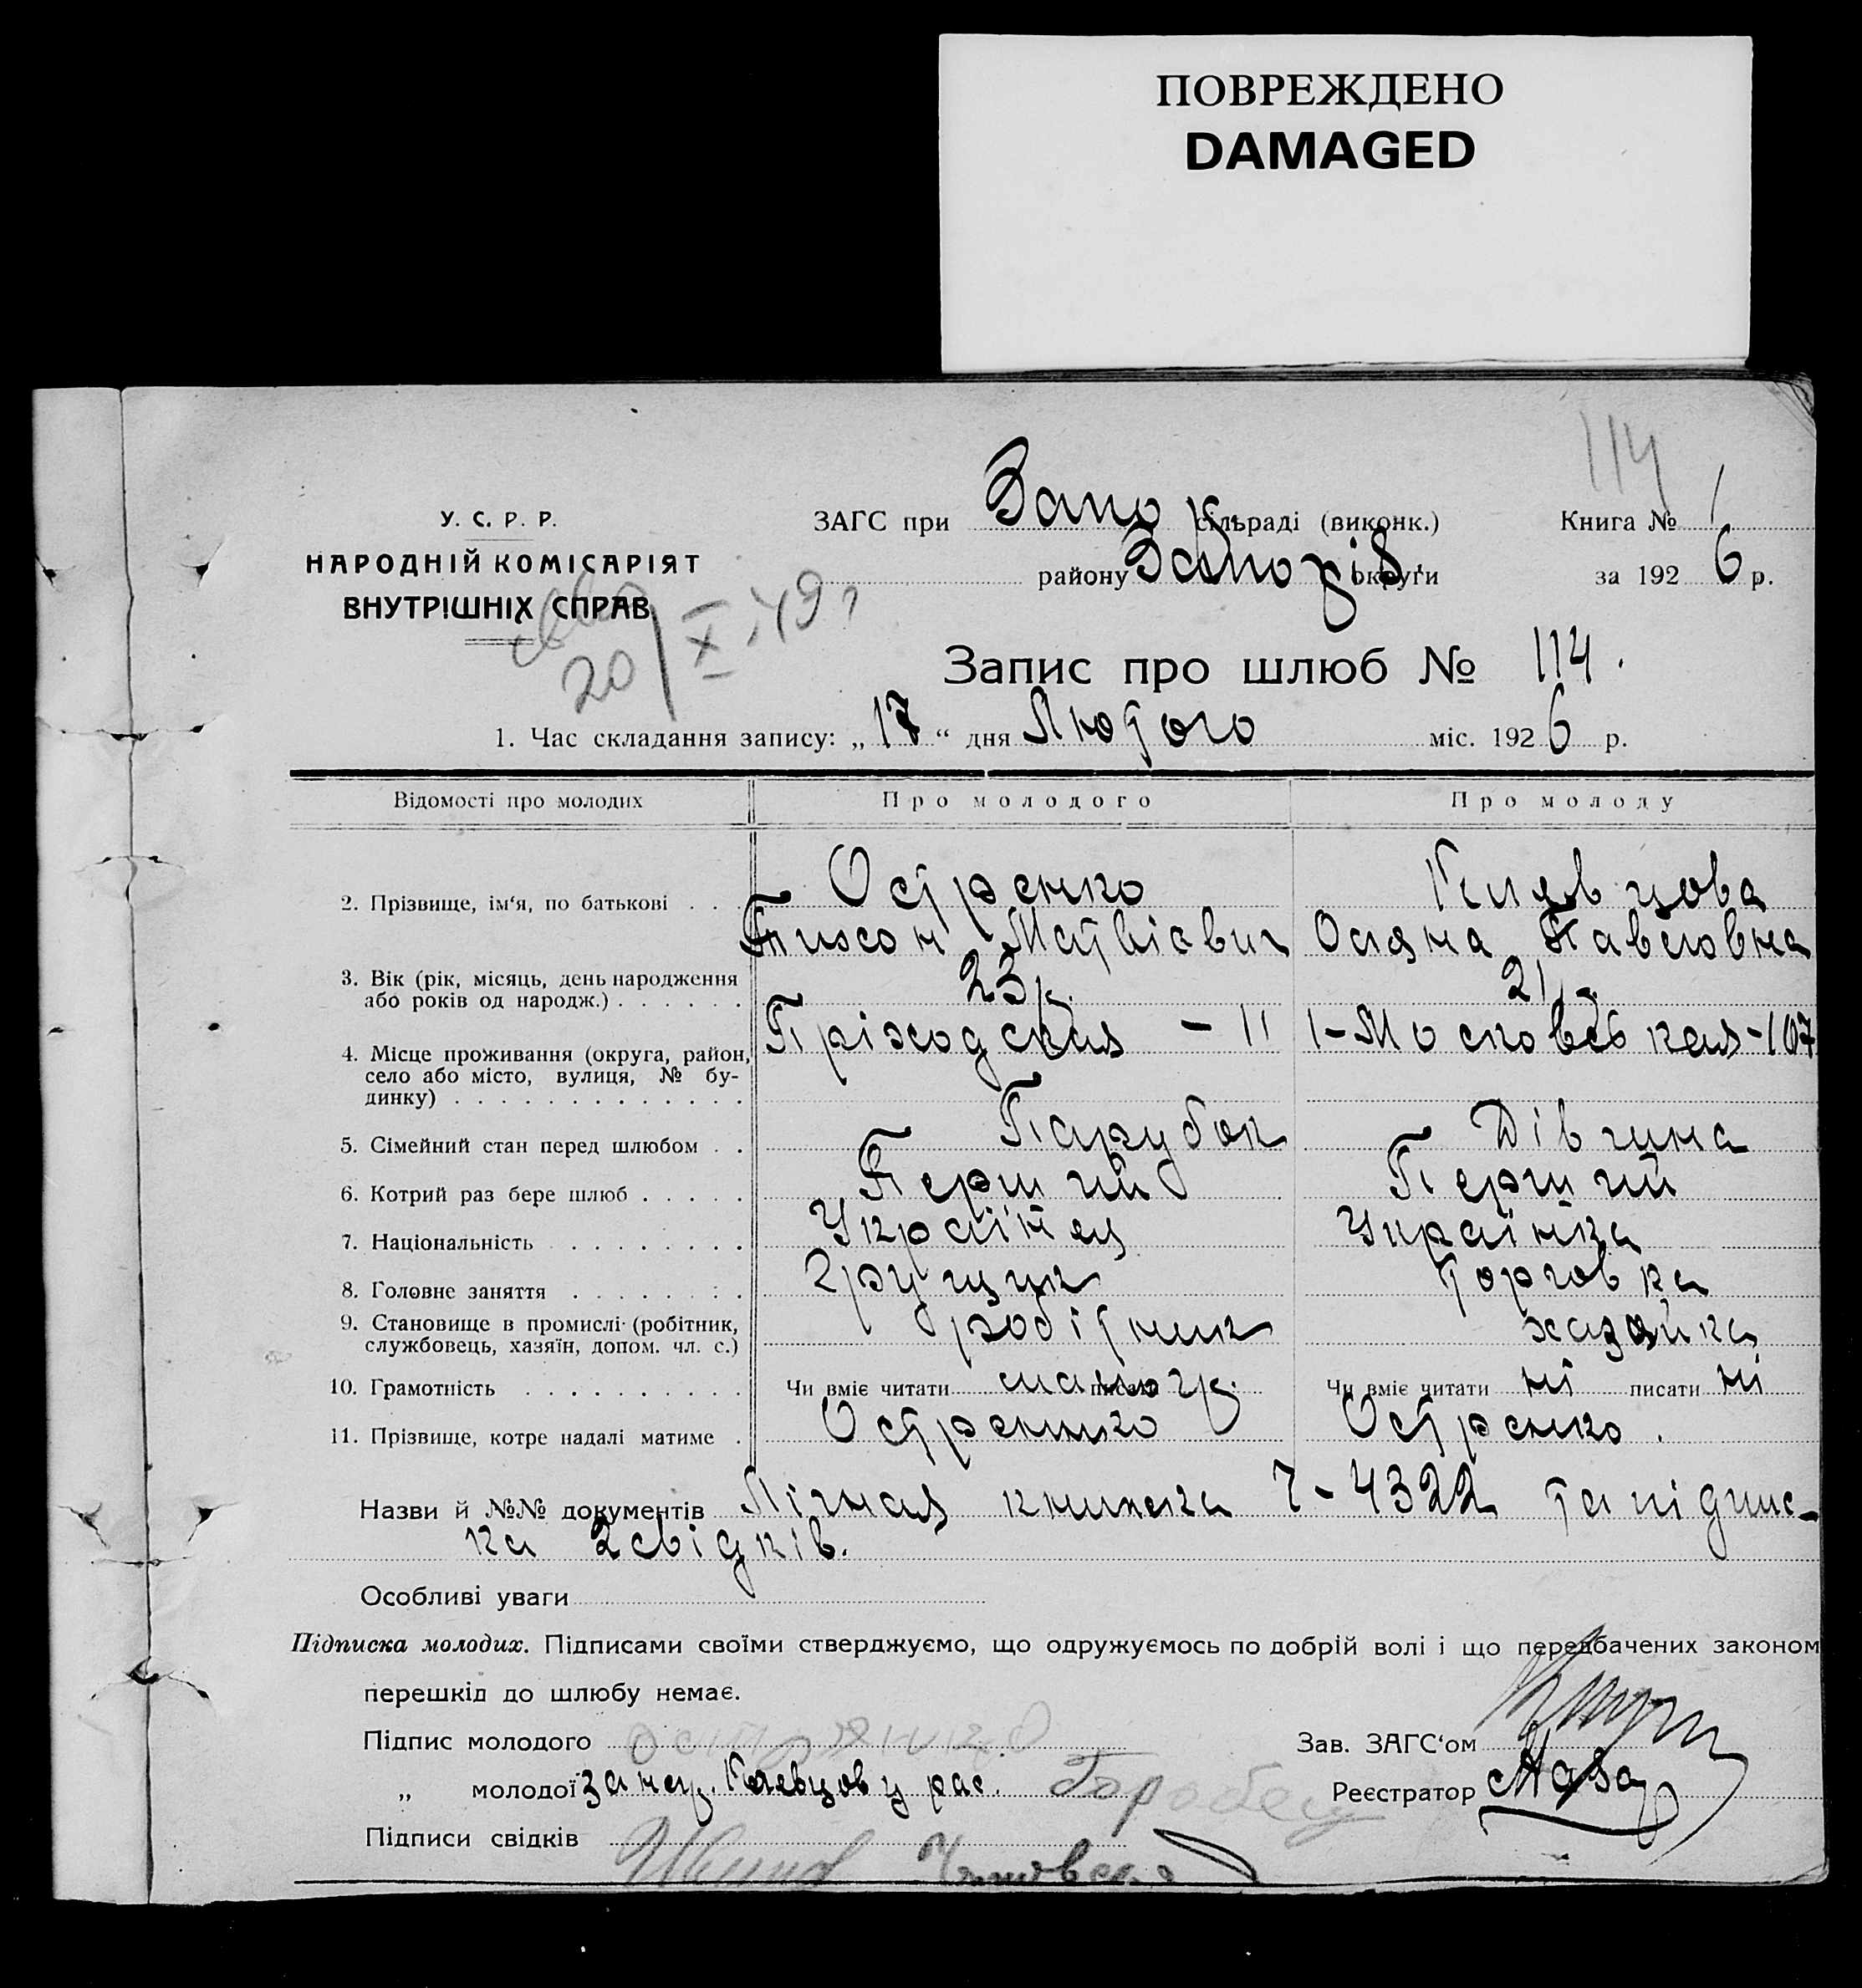 ПОВРЕЖДЕНО
DAMAGED
114
У. С. Р. Р.
НАРОДНІЙ КОМІСАРІЯТ
ВНУТРІШНІХ СПРАВ
20/X 49 г
ЗАГС при Запо сільраді (виконк.) Книга № 1
району Запоріз. округи за 1926 р.
Запис про шлюб № 114.
1. Час складання запису: „17“ дня Лютого міс. 1926 р.
Відомості про молодих Про молодого Про молоду
2. Прізвище, ім‘я, по батькові . . . Остренко
Тихон Матвієвич Павловна
3. Вік (рік, місяць, день народження
або років од народж.) . . . . . . 23 р. 21 р.
4. Місце проживання (округа, район,
село або місто, вулиця, № бу-
динку) . . . . . . . . . . . . . Пріходская - 11 1-Московская-107
5. Сімейний стан перед шлюбом . . Парубок Дівчина
6. Котрий раз бере шлюб . . . . . Перший Перший
7. Національність . . . . . . . . Українец Українка
8. Головне заняття . . . . . . . . Грущик торговка
9. Становище в промислі (робітник,
службовець, хазяїн, допом. чл. с.) робітник хазяйка
10. Грамотність . . . . . . . . . . Чи вміє читати малогр. писати Чи вміє читати ні писати ні
11. Прізвище, котре надалі матиме . Остренко Остренко .
Назви й №№ документів Лічная книжка 7-4322 та підпис-
ка 2 свідків.
Особливі уваги
Підписка молодих. Підписами своїми стверджуємо, що одружуємось по добрій волі і що передбачених законом
перешкід до шлюбу немає.
Підпис молодого Зав. ЗАГС‘ом
„ молодої за нег. рас. Горобец Реєстратор
Підписи свідків